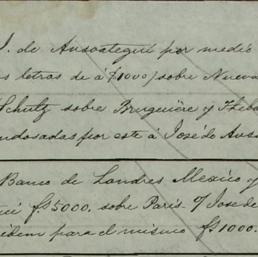 S. de Ansoategui por medio
as letras de á $1000/ sobre Nueva
Schultz sobre Bruguiére y Thiba
endosadas por este á José de Ansa
Banco de Londres Mexico y
ui f. 5000. sobre Paris. 7/ José de
ibem para el mismo f. 1000.